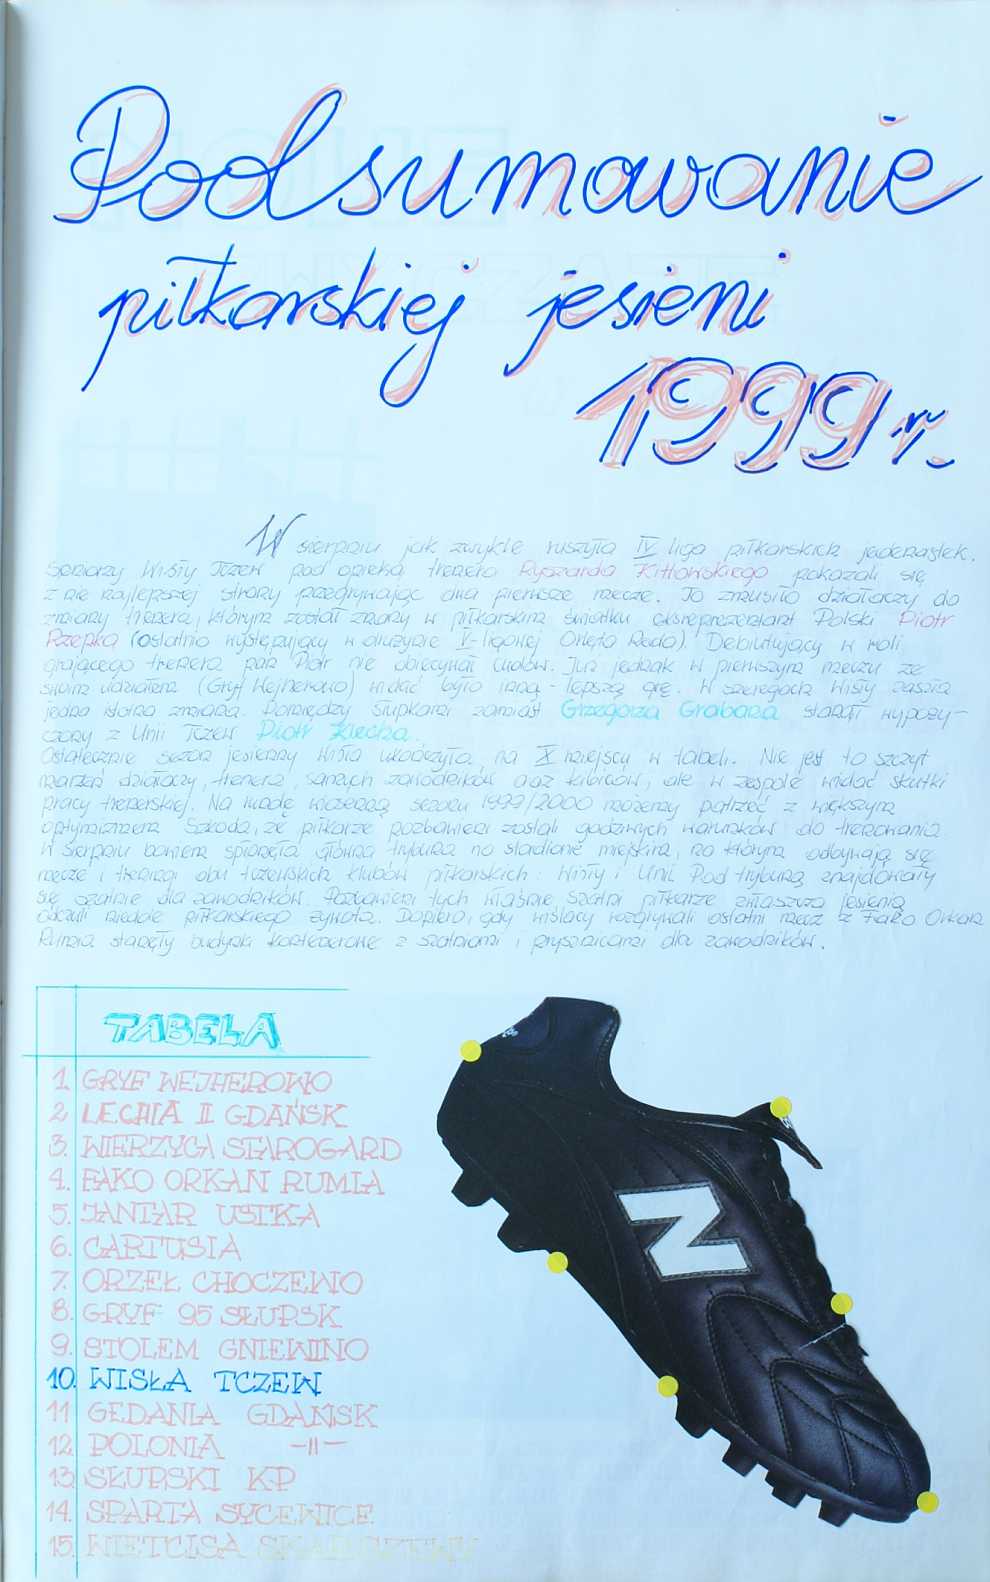 Podsumowanie
piłkarskiej jesieni
1999 r.
W sierpniu jak zwykle ruszyła IV liga piłkarskich jedenastek.
Seniorzy Wisły Tczew pod opieką trenera Ryszarda Kitłowskiego pokazali się
z nie najlepszej strony przegrywając dwa pierwsze mecze. To zmusiło działaczy do
zmiany trenera, którym został znany w piłkarskim światku eksreprezentant Polski Piotr
Rzepka (ostatnio występujący w drużynie V-ligowej Orlęta Reda). Debiutujący w roli
grającego trenera pan Piotr nie obiecywał cudów. Już jednak w pierwszym meczu ze
swoim udziałem (Gryf Wejherowo) widać było inną - lepszą grę. W szeregach Wisły zaszła
jedna istotna zmiana. Pomiędzy słupkami zamiast Grzegorza Grabara stanął wypoży-
czony z Unii Tczew Piotr Klecha.
Ostatecznie sezon jesienny Wisła ukończyła na X miejscu w tabeli. Nie jest to szczyt
marzeń działaczy, trenera, samych zawodników oraz kibiców, ale w zespole widać skutki
pracy trenerskiej. Na rundę wiosenną sezonu 1999/2000 możemy patrzeć z większym
optymizmem. Szkoda, że piłkarze pozbawieni zostali godziwych warunków do trenowania.
W sierpniu bowiem spłonęła główna trybuna na stadionie miejskim, na którym odbywają się
mecze i treningi obu tczewskich klubów piłkarskich: Wisły i Unii. Pod trybuną znajdowały
się szatnie dla zawodników. Pozbawieni tych właśnie szatni piłkarze zwłaszcza jesienią
odczuli niedole piłkarskiego żywota. Dopiero, gdy wiślacy rozgrywali ostatni mecz z Fako Orkan
Rumia stanęły budynki kontenerowe z szatniami i prysznicami dla zawodników.
TABELA
1. GRYF WEJHEROWO
2. LECHIA II GDAŃSK
3. WIERZYCA STAROGARD
4. FAKO ORKAN RUMIA
5. JANTAR USTKA
6. CARTUSIA
7. ORZEŁ CHOCZEWO
8. GRYF 95 SŁUPSK
9. STOLEM GNIEWINO
10. WISŁA TCZEW
11 GEDANIA GDAŃSK
12. POLONIA —II—
13. SŁUPSKI KP
14. SPARTA SYCEWICE
15. WIETCISA SKARSZEWY
N